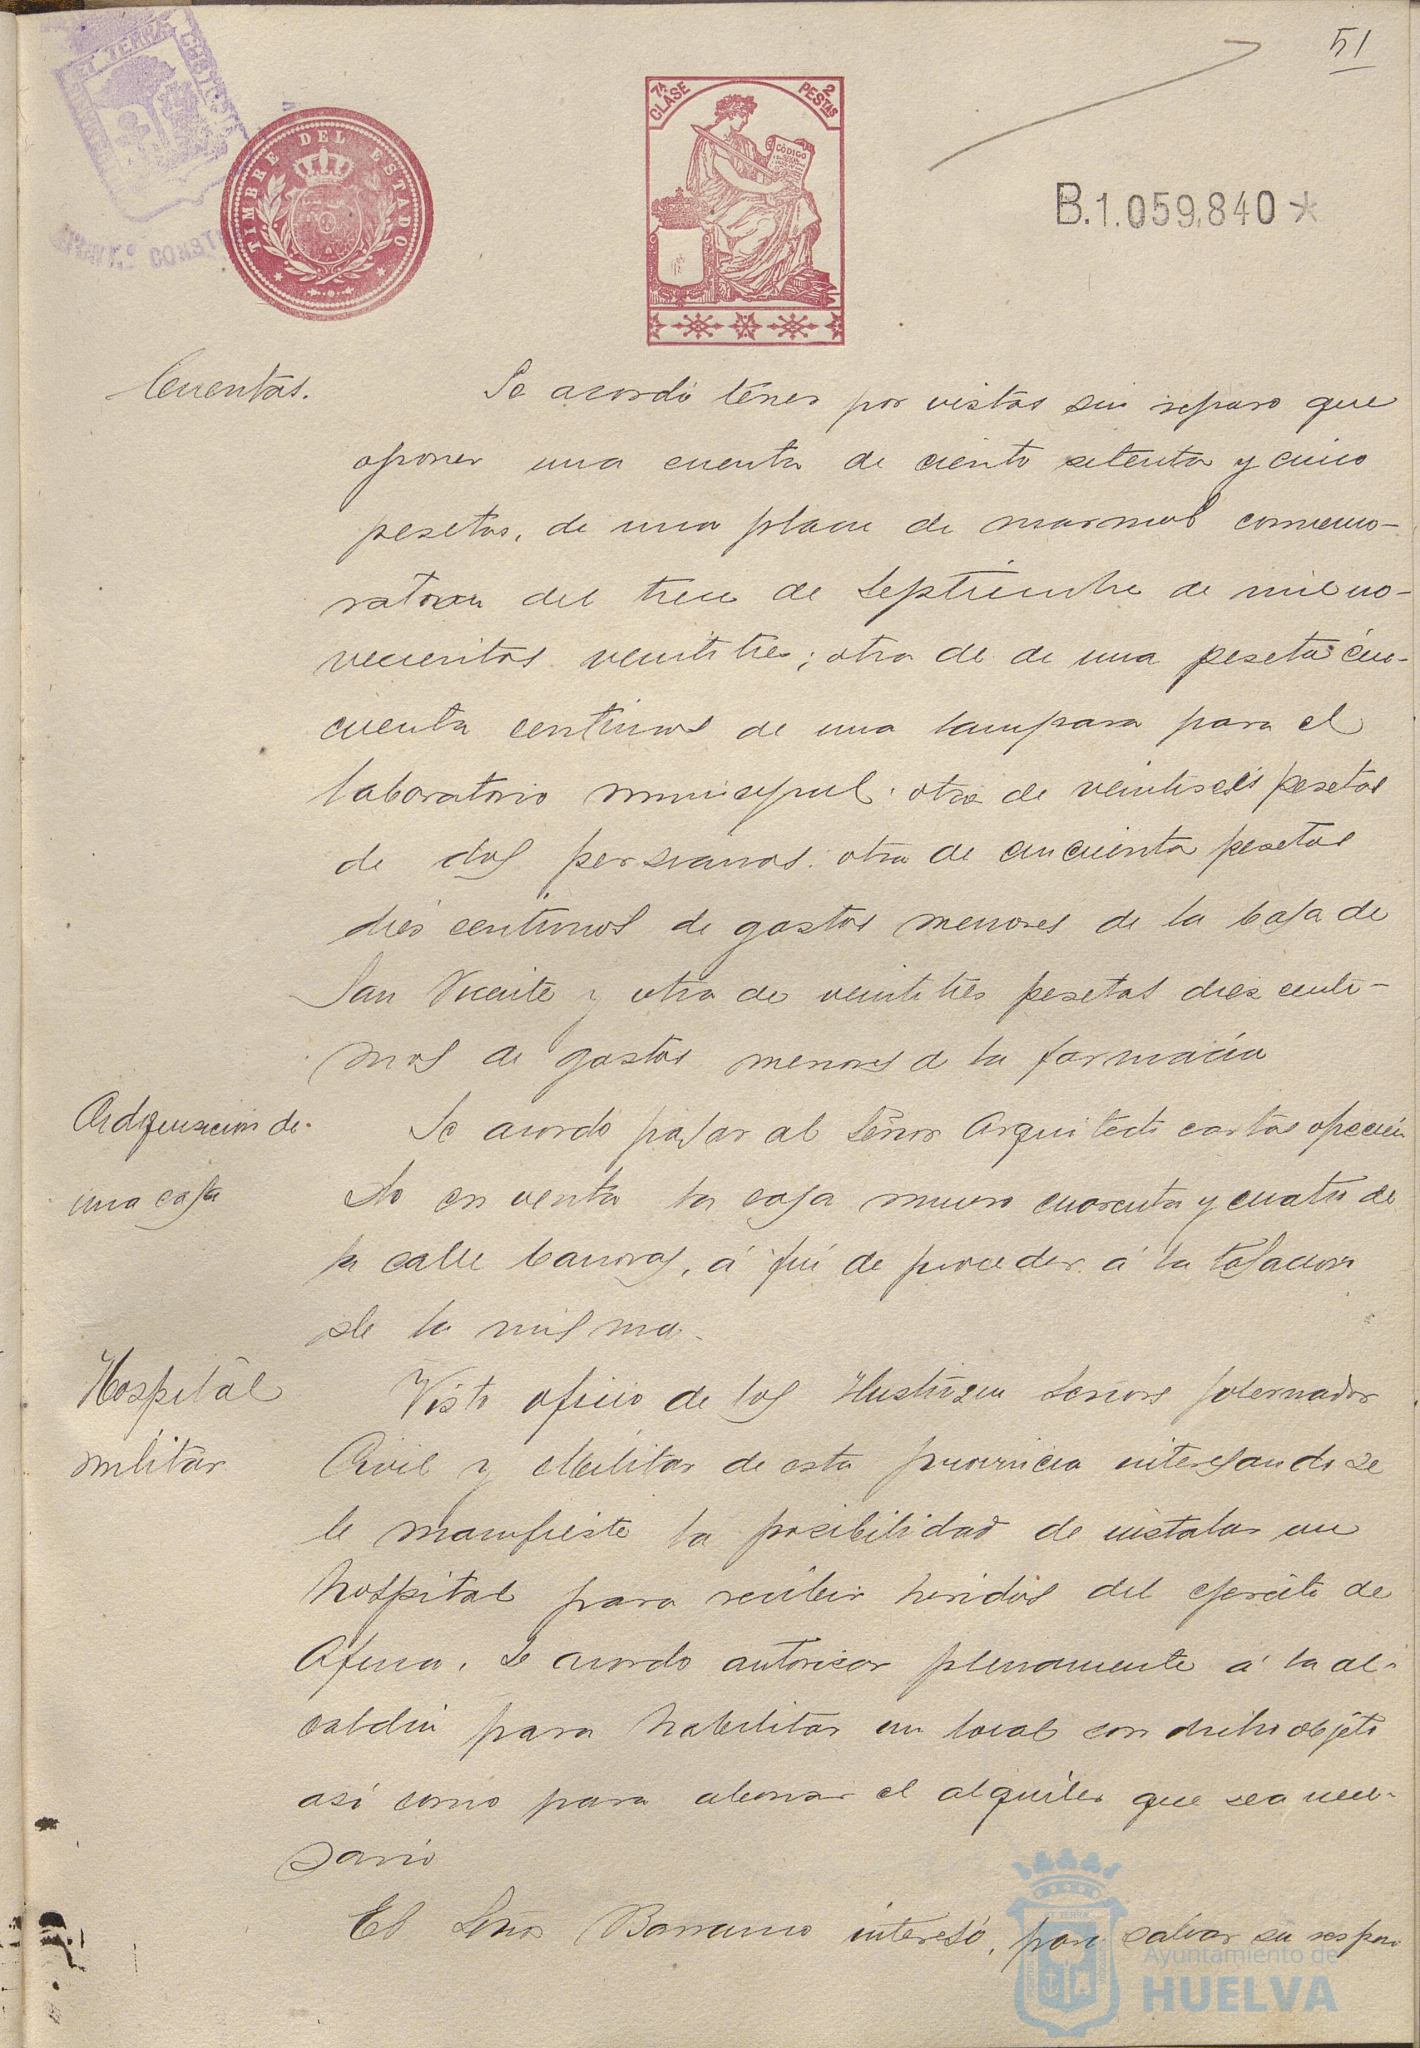 51
7ª CLASE
2 PESTAS
CÓDIGO
TIMBRE DEL ESTADO
B.1.059,840*
Cuentas.
Se acordó tener por vistas sin reparo que
oponer una cuenta de ciento setenta y cinco
pesetas, de una placa de marmol conmemo-
ratoria del trece de Septiembre de mil no-
vecientos veintitres; otra de de una peseta cin-
cuenta centimos de una lampara para el
laboratorio municipal; otra de veintiseis pesetas
de dos persianas; otra de cincuenta pesetas
dies centimos de gastos menores de la Casa de
San Vicente y otra de veintitres pesetas dies centi-
mos de gastos menores d la farmacia
Adquisicion de
una casa
Se acordo pasar al Señor Arquitecto cartas
en venta la casa cuarenta y cuatro de
la calle Canovas, á fin de proceder á la tasacion
de la misma.
Hospital
militar
Visto oficio de los Señores Gobernador
Civil y Militar de esta provincia interesando se
le manifieste la posibilidad de instalar un
hospital para recibir heridos del ejercito de
Africa, se acordo autorizar plenamente á la al-
caldia para habilitar un local con dicho objeto
así como para abonar el alquiler que sea nece-
sario
El Señor Barranco interesó, para salvar su respon
Ayuntamiento de
HUELVA